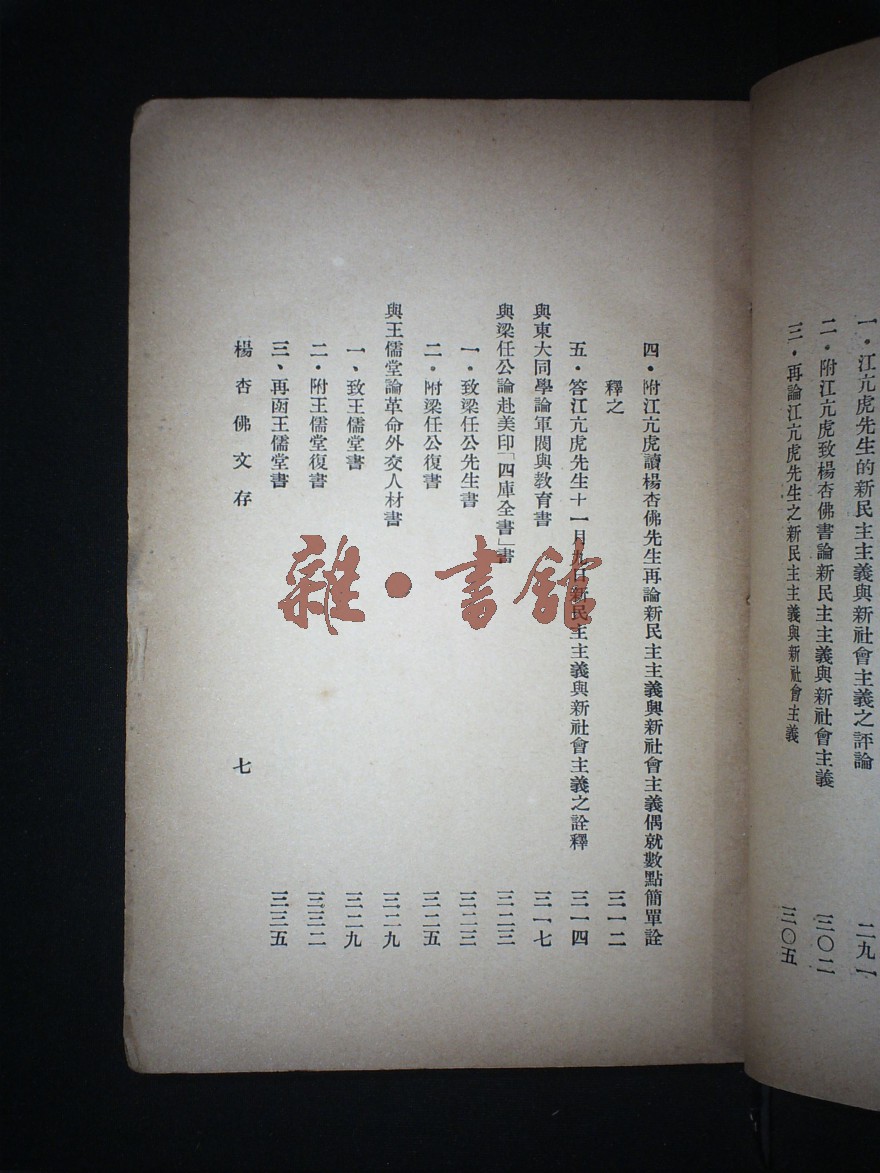 一．江亢虎先生的新民主主義與新社會主義之評論 二九一
二．附江亢虎致楊杏佛書論新民主主義與新社會主義 三〇二
三．再論江亢虎先生之新民主主義與新社會主義 三〇五
四．附江亢虎讀楊杏佛先生再論新民主主義與新社會主義偶就數點簡單詮
釋之 三一二
五．答江亢虎先生十一月九日新民主主義與新社會主義之詮釋 三一四
與東大同學論軍閥與教育書 三一七
與梁任公論赴美印「四庫全書」書 三二三
一．致梁任公先生書 三二三
二．附梁任公復書 三二五
與王儒堂論革命外交人材書 三二九
一、致王儒堂書 三二九
二．附王儒堂復書 三三二
三、再函王儒堂書 三三五
楊杏佛文存 七
雜·書館